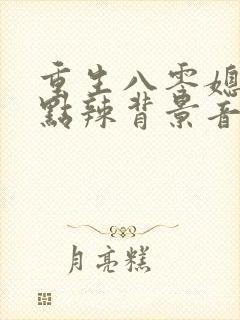 重生八零媳
點辣背景音
月亮糕